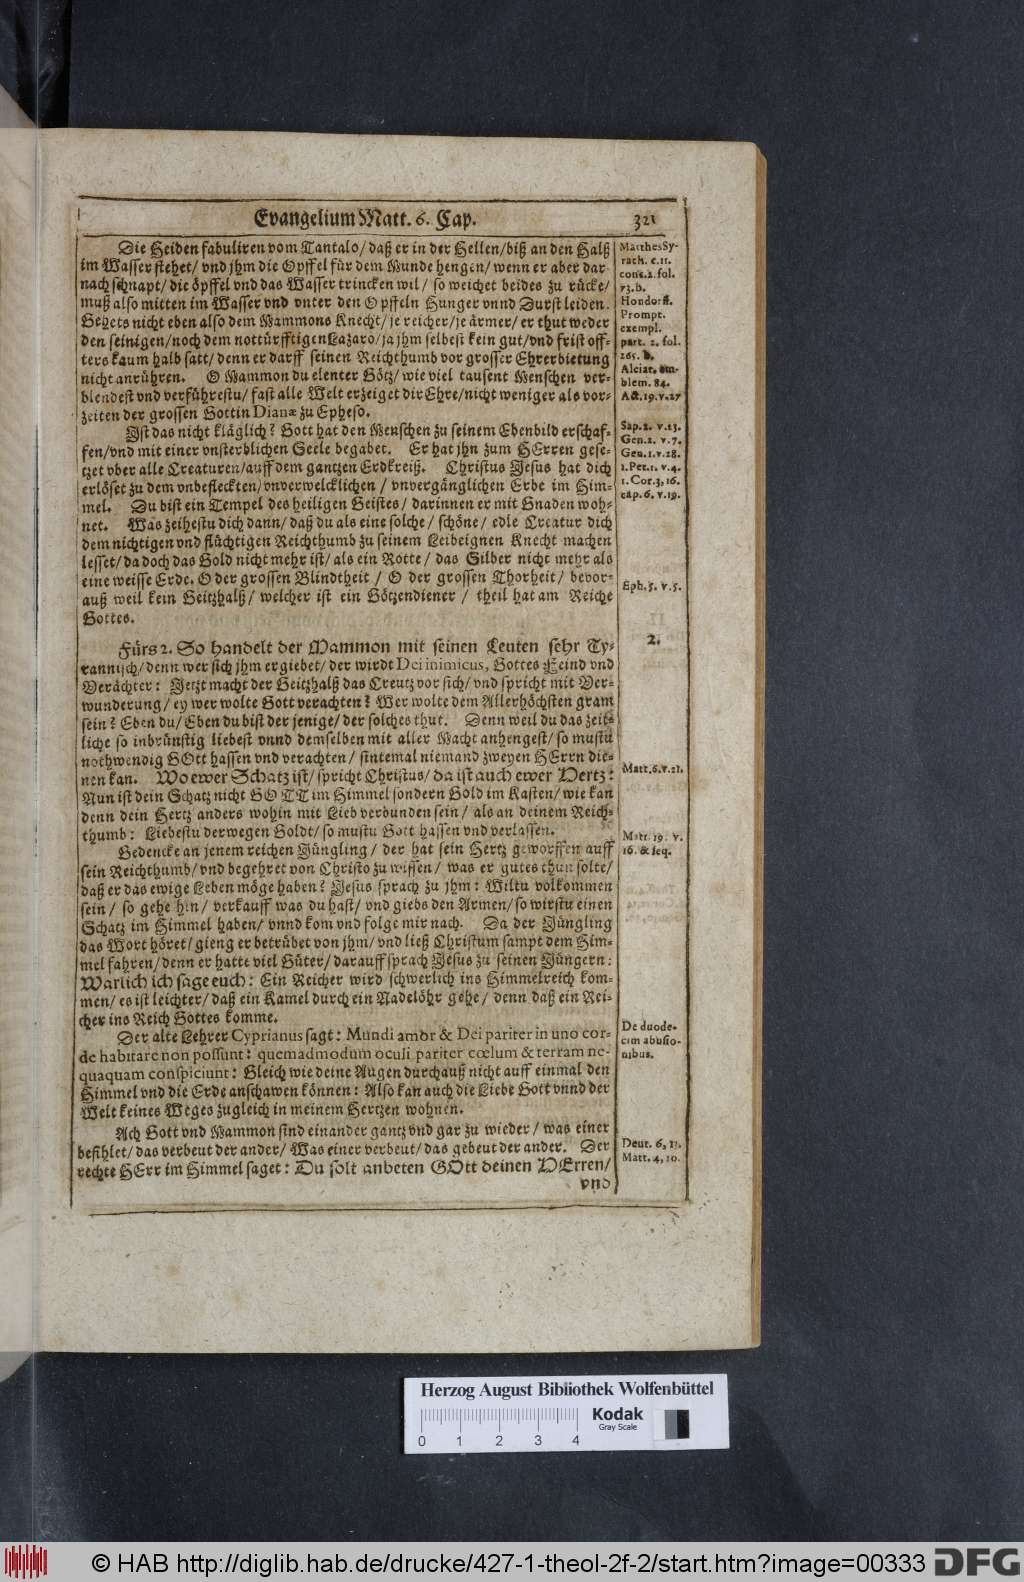 Evangelium Matt. 6. Cap. 321
Die Heiden fabuliren vom Tantalo/ daß er in der Hellen/ biß an den Halß
im Wasser stehet/ vnd jhm die Opffel für dem Munde hengen/ wenn er aber dar
nach schnapt/ die öpffel vnd das Wasser trincken wil/ so weichet beides zu rücke/
muß also mitten im Wasser vnd vnter den Opffeln Hunger vnnd Durst leiden.
Gehets nicht eben also dem Mammons Knecht/ je reicher/ je ärmer/ er thut weder
den seinigen/ noch dem nottürfftigen Lazaro/ ja jhm selbest kein gut/ vnd frist off-
ters kaum halb satt/ denn er darff seinen Reichthumb vor grosser Ehrerbietung
nicht anrühren. O Mammon du elenter Götz/ wie viel tausent Menschen ver-
blendest vnd verführestu/ fast alle Welt erzeiget dir Ehre/ nicht weniger als vor-
zeiten der grossen Göttin Dianæ zu Epheso.
Ist das nicht kläglich? Gott hat den Menschen zu seinem Ebenbild erschaf-
fen/ vnd mit einer vnsterblichen Seele begabet. Er hat jhn zum HErren gese-
tzet vber alle Creaturen/ auff dem gantzen Erdkreiß. Christus Jesus hat dich
erlöset zu dem vnbefleckten/ vnverwelcklichen/ vnvergänglichen Erbe im Him-
mel. Du bist ein Tempel des heiligen Geistes/ darinnen er mit Gnaden woh-
net. Was zeihestu dich dann/ daß du als eine solche/ schöne/ edle Creatur dich
dem nichtigen vnd flüchtigen Reichthumb zu seinem Leibeignen Knecht machen
lessest/ da doch das Gold nicht mehr ist/ als ein Rotte/ das Silber nicht mehr als
eine weisse Erde. O der grossen Blindtheit/ O der grossen Thorheit/ bevor-
auß weil kein Geitzhalß/ welcher ist ein Götzendiener/ theil hat am Reiche
Gottes.
Fürs 2. So handelt der Mammon mit seinen Leuten sehr Ty-
rannisch/ denn wer sich jhm ergiebet/ der wirdt Dei inimicus, Gottes Feind vnd
Verächter: Jetzt macht der Geitzhalß das Creutz vor sich/ vnd spricht mit Ver-
wunderung/ ey wer wolte Gott verachten? Wer wolte dem Allerhöchsten gram
sein? Eben du/ Eben du bist der jenige/ der solches thut. Denn weil du das zeit-
liche so inbrünstig liebest vnnd demselben mit aller Macht anhengest/ so mustu
nothwendig GOtt hassen vnd verachten/ sintemal niemand zweyen HErrn die-
nen kan. Wo ewer Schatz ist/ spricht Christus/ da ist auch ewer Hertz:
Nun ist dein Schatz nicht GOTT im Himmel sondern Gold im Kasten/ wie kan
denn dein Hertz anders wohin mit Lieb verbunden sein/ als an deinem Reich-
thumb: Liebestu derwegen Goldt/ so mustu Gott hassen vnd verlassen.
Gedencke an jenem reichen Jüngling/ der hat sein Hertz geworffen auff
sein Reichthumb/ vnd begehret von Christo zu wissen/ was er gutes thun solte/
daß er das ewige Leben möge haben? Jesus sprach zu jhm: Wiltu volkommen
sein/ so gehe hin/ verkauff was du hast/ vnd giebs den Armen/ so wirstu einen
Schatz im Himmel haben/ vnnd kom vnd folge mir nach. Da der Jüngling
das Wort höret/ gieng er betrübet von jhm/ vnd ließ Christum sampt dem Him-
mel fahren/ denn er hatte viel Güter/ darauff sprach Jesus zu seinen Jüngern:
Warlich ich sage euch: Ein Reicher wird schwerlich ins Himmelreich kom-
men/ es ist leichter/ daß ein Kamel durch ein Nadelöhr gehe/ denn daß ein Rei-
cher ins Reich Gottes komme.
Der alte Lehrer Cyprianus sagt: Mundi amor & Dei pariter in uno cor-
de habitare non possunt: quemadmodum oculi pariter cœlum & terram ne-
quaquam conspiciunt: Gleich wie deine Augen durchauß nicht auff einmal den
Himmel vnd die Erde anschawen können: Also kan auch die Liebe Gott vnnd der
Welt keines Weges zugleich in meinem Hertzen wohnen.
Ach Gott vnd Mammon sind einander gantz vnd gar zu wieder/ was einer
befihlet/ das verbeut der ander/ Was einer verbeut/ das gebeut der ander. Der
rechte HErr im Himmel saget: Du solt anbeten GOtt deinen HErren/
vnd
Matthes Sy-
rach. c. 11.
conc. 2. fol.
73. b.
Hondorff.
Prompt.
exempl.
part. 2. fol.
265. b.
Alciat. em-
blem. 84.
Act. 19. v. 27
Sap. 2. v. 23.
Gen. 2. v. 7.
Gen. 1. v. 28.
1. Pet. 1. v. 4.
1. Cor. 3, 16.
cap. 6. v. 19.
Eph. 5. v. 5.
2.
Matt. 6. v. 21.
Matt. 19. v.
16. & seq.
De duode-
cim abusio-
nibus.
Deut. 6, 13.
Matt. 4, 10.
Herzog August Bibliothek Wolfenbüttel
Kodak
Gray Scale
0 1 2 3 4
© HAB http://diglib.hab.de/drucke/427-1-theol-2f-2/start.htm?image=00333
DFG